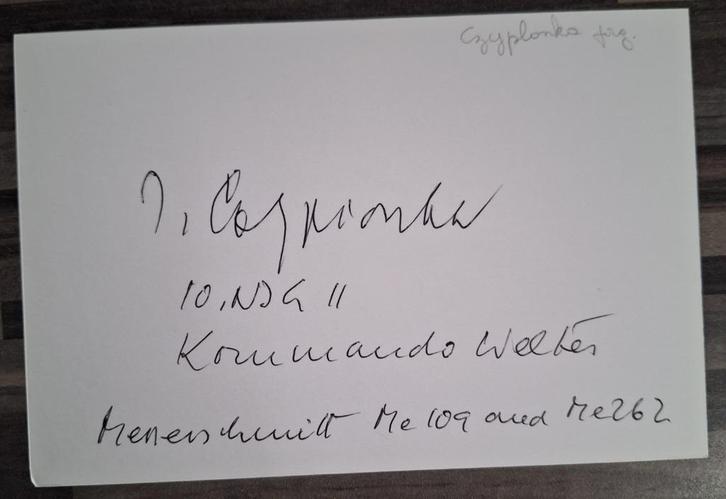 Czyplonka jrg.
J. Czypionka
10./NJG 11
Kommando Welter
Messerschmitt Me 109 and Me 262